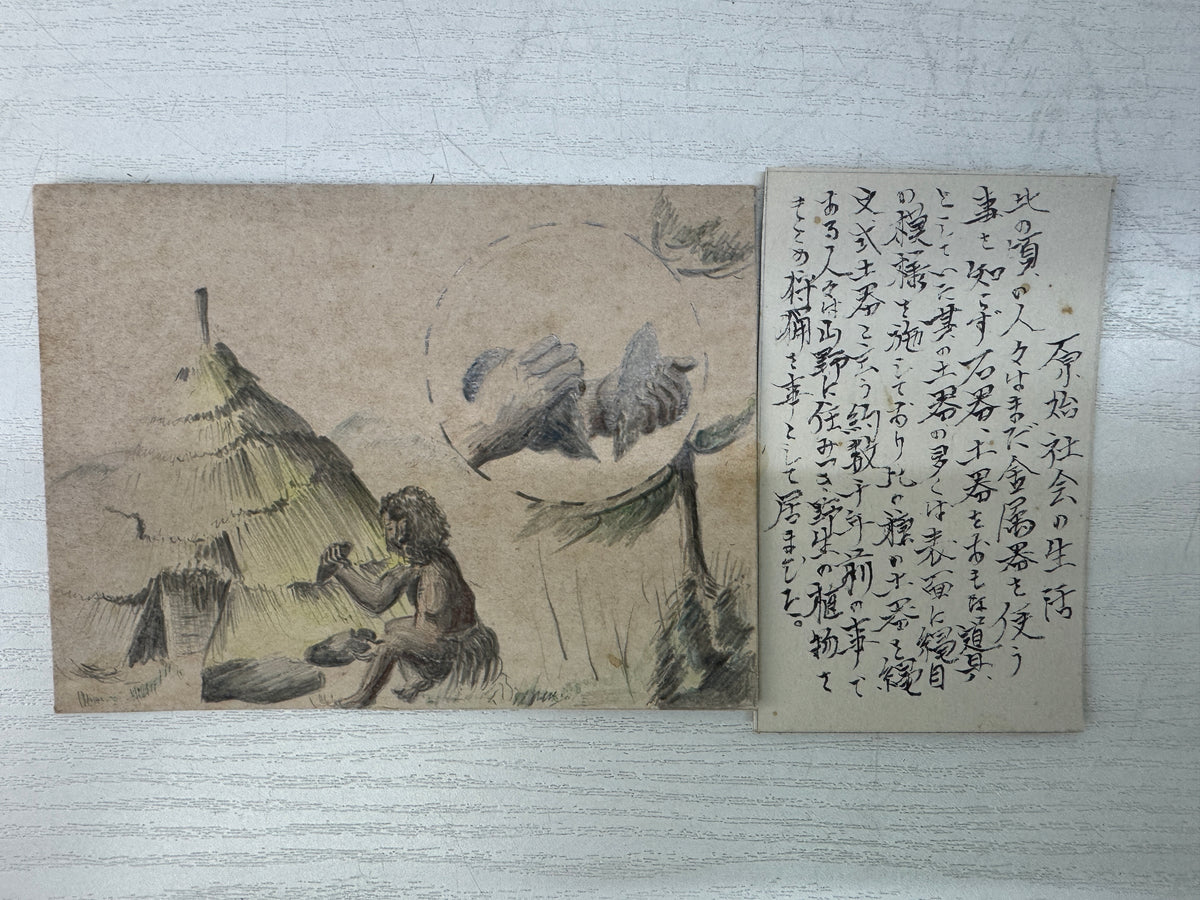 原始社会の生活
此の頃の人々はまだ金属器を使う
事を知らず石器、土器をおもな道具
としていた其の土器の多くは表面に縄目
の模様を施こしており此の種の土器を縄
文式土器と云う約数千年前の事で
ある人々は山野に住みつき野生の植物を
きこの狩猟を事として居ました。